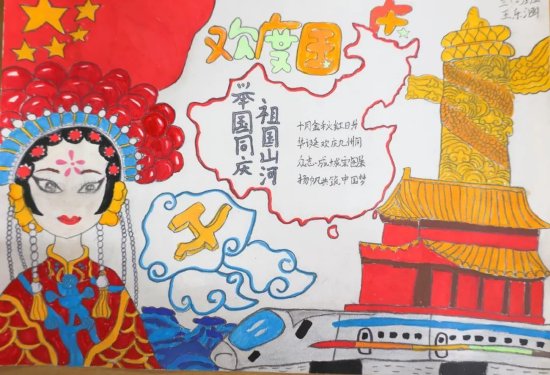 欢度国
祖国山河
举国同庆
十月金秋红日升
华诞欢庆九州同
众志成城宏图展
扬帆共筑中国梦